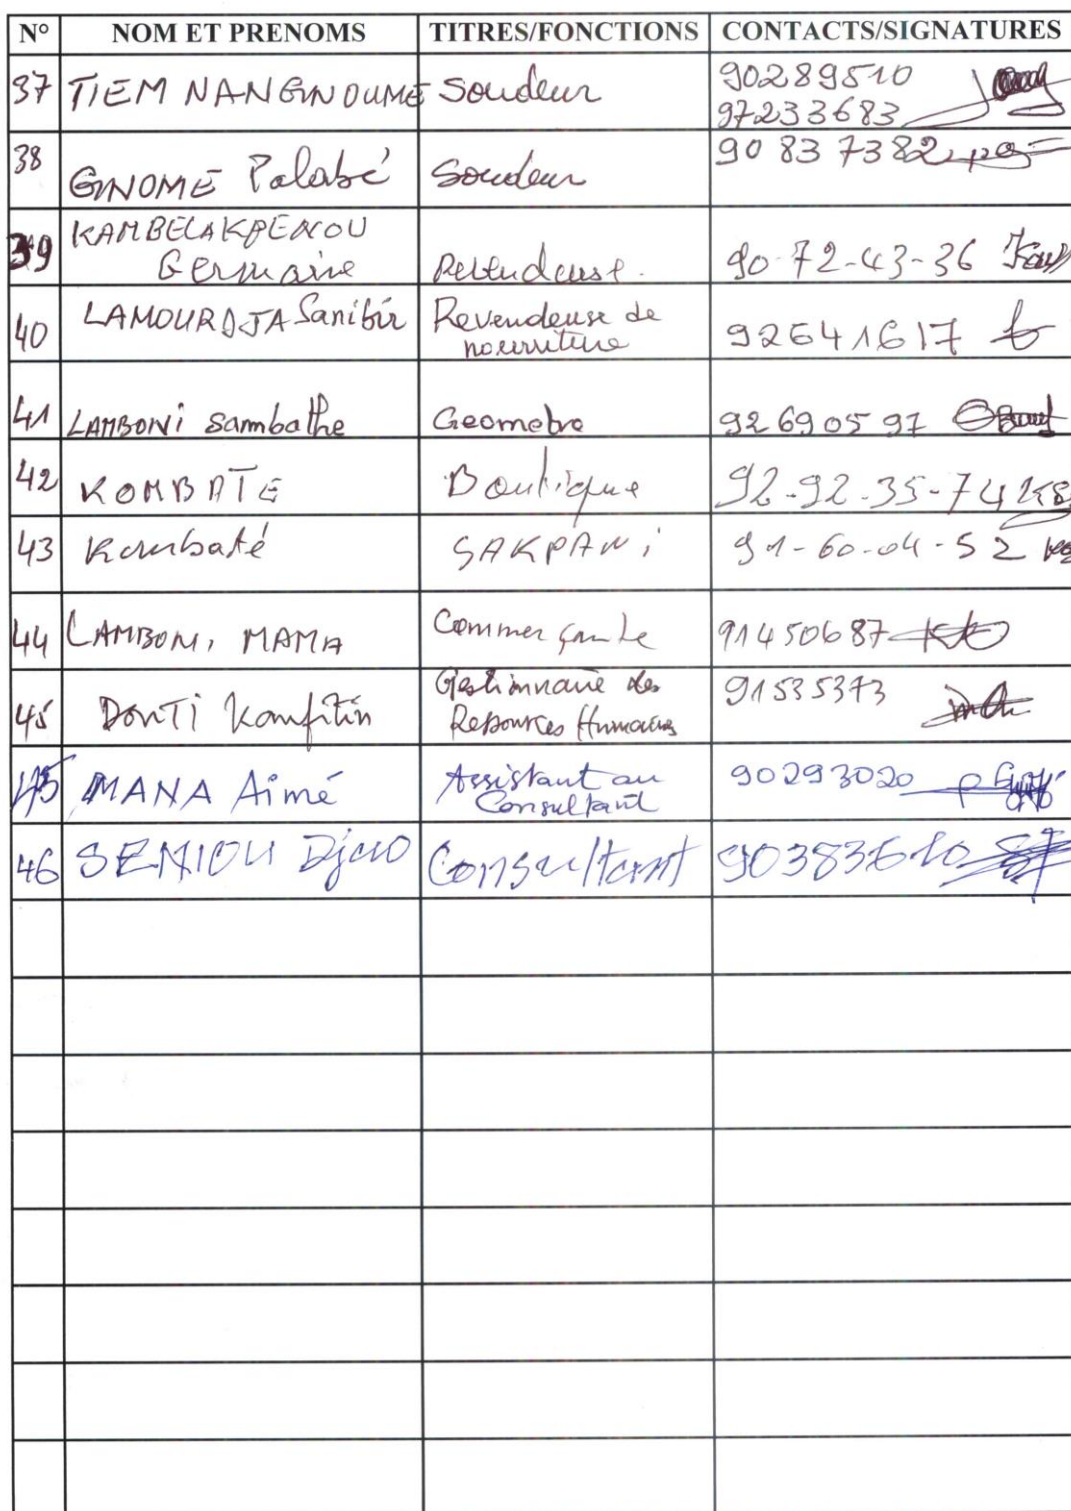 N° NOM ET PRENOMS TITRES/FONCTIONS CONTACTS/SIGNATURES
37 TIEM NANGINOUME Soudeur 90289510
97233683
38 GNOME Palabé Soudeur 90 83 7382
39 KAMBELAKPENOU
Germaine Revendeuse. 90-72-43-36
40 LAMOURDJA Sanibir Revendeuse de
nourriture 92641617
41 LAMBONi Sambathe Geometre 92690597
42 KOMBATE Boutique 92-92-35-74
43 Kombaté SAKPANi 91-60-04-52
44 LAMBONi MAMA Commerçante 91450687
45 DONTI Kamfitin Gestionnaire des
Ressources Humaines 91535373
45 MANA Aimé Assistant au
Consultant 90293020
46 SENIOU Djero Consultant 90383610